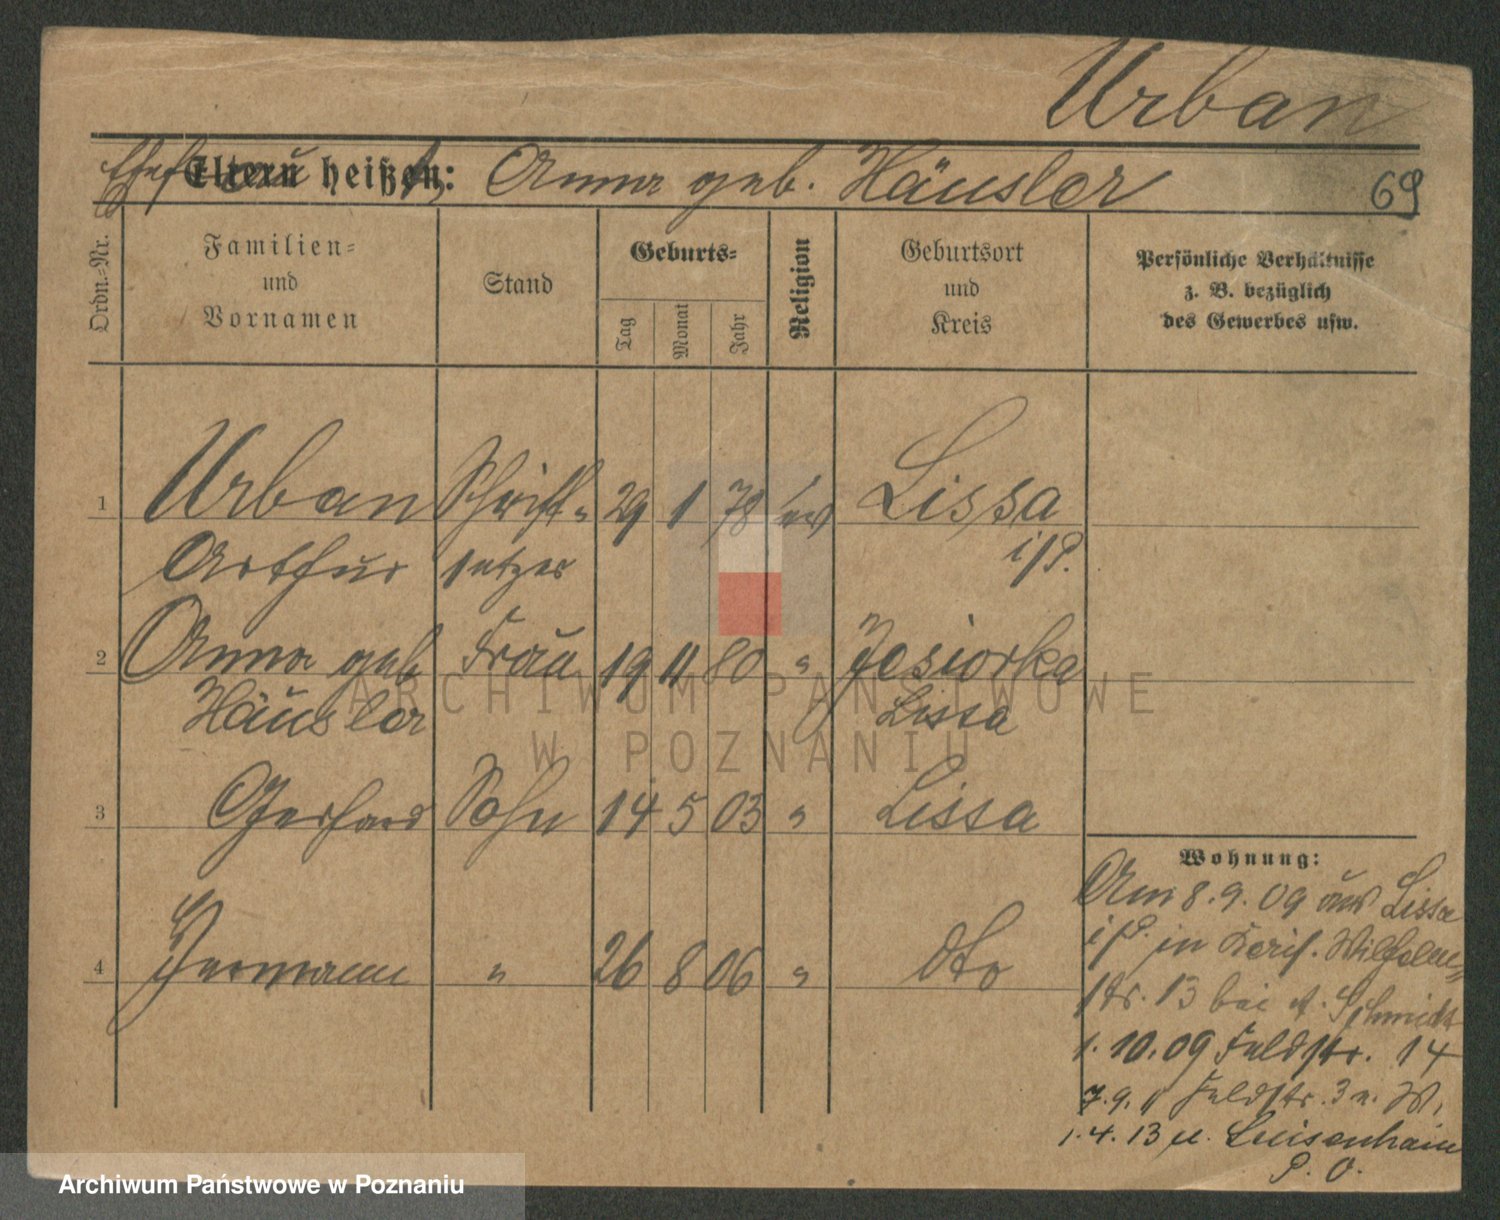 Urban
Ehefrau
Eltern heißen: Anna geb. Häusler
69
Ordn.-Nr.
Familien-
und
Vornamen
Stand
Geburts-
Tag
Monat
Jahr
Religion
Geburtsort
und
Kreis
Persönliche Verhältnisse
z. B. bezüglich
des Gewerbes usw.
1 Urban Schrift- 29 1 78 ev Lissa
Arthur setzer i/P.
2 Anna geb Frau 19 11 80 " Jesiorka
Häusler Lissa
3 Gerhard Sohn 14 5 03 " Lissa
4 Hermann " 26 8 06 " dto
Wohnung:
Am 8.9.09 aus Lissa
i/P. in Wilhelm-
str. 13 bei Schmidt
1.10.09 Feldstr. 14
Feldstr. 3
1.4.13 n. Luisenhain
P. O.
ARCHIWUM PAŃSTWOWE
W POZNANIU
Archiwum Państwowe w Poznaniu